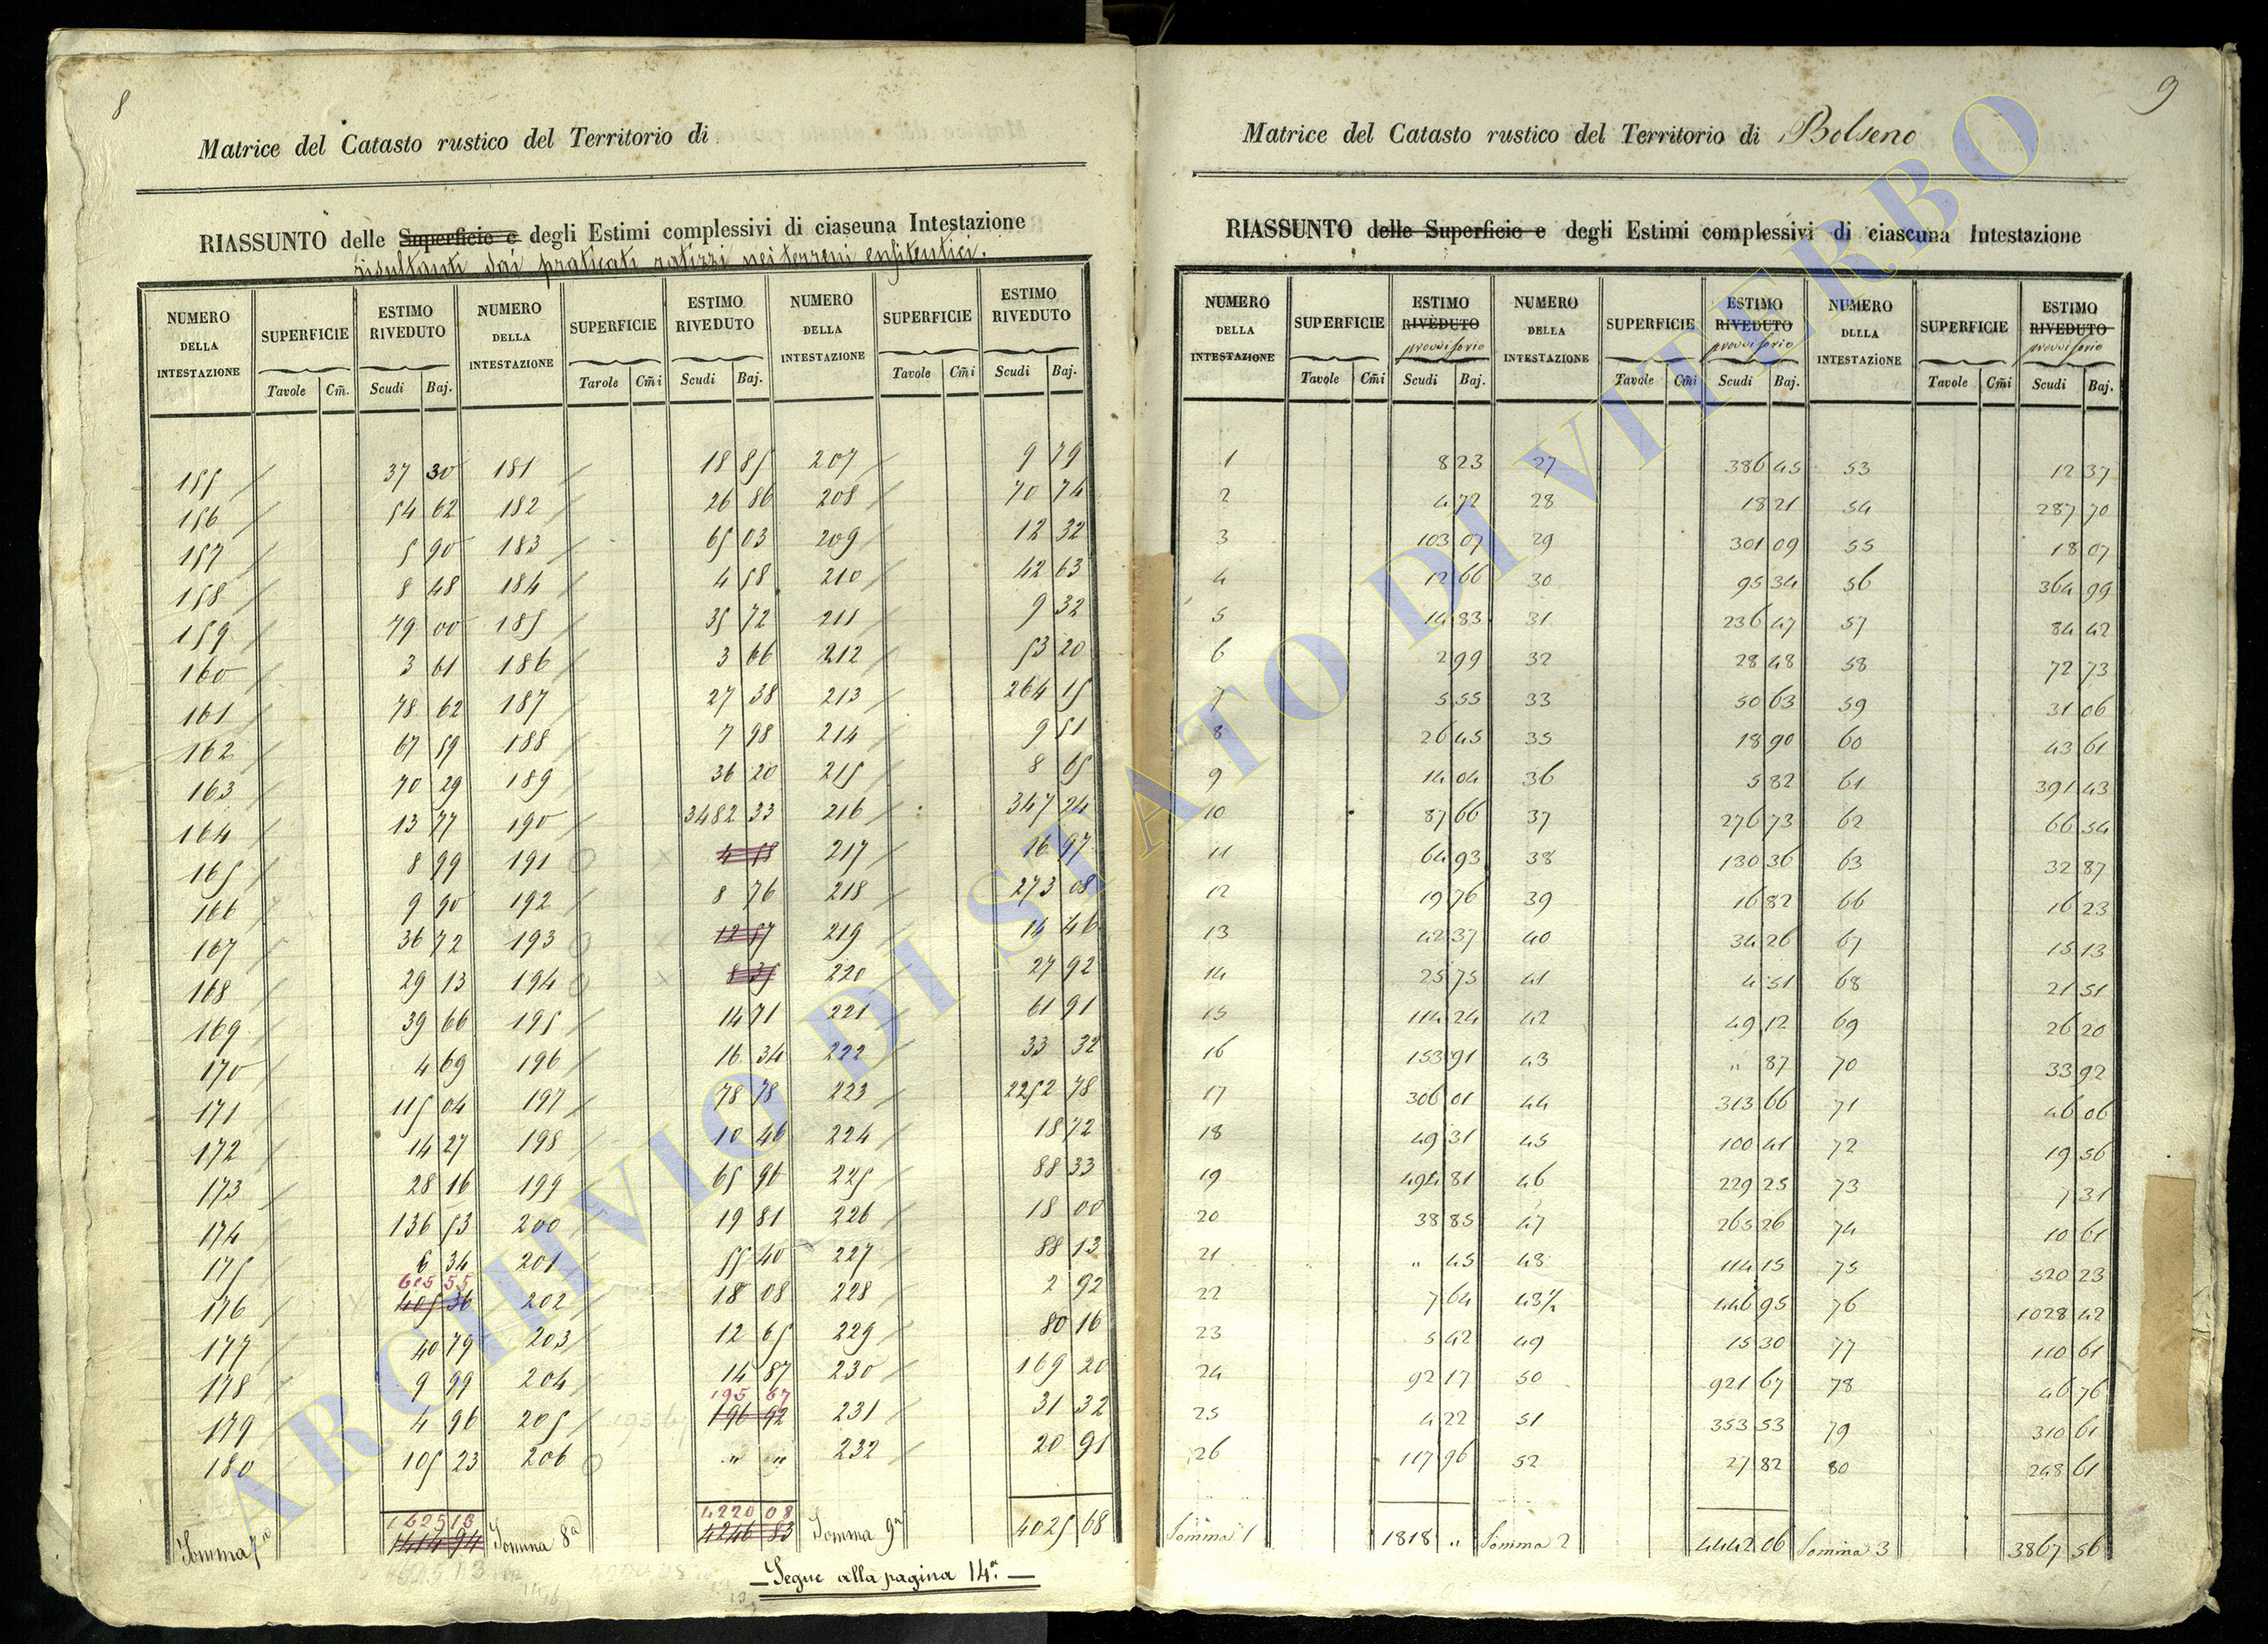 8
Matrice del Catasto rustico del Territorio di
RIASSUNTO delle Superficie e degli Estimi complessivi di ciascuna Intestazione
risultanti dai praticati ratizzi nei terreni enfiteutici.
NUMERO DELLA INTESTAZIONE SUPERFICIE ESTIMO RIVEDUTO NUMERO DELLA INTESTAZIONE SUPERFICIE ESTIMO RIVEDUTO NUMERO DELLA INTESTAZIONE SUPERFICIE ESTIMO RIVEDUTO
Tavole Cm̃. Scudi Baj. Tavole Cm̃i Scudi Baj. Tavole Cm̃i Scudi Baj.
155 37 30 181 18 85 207 9 79
156 54 62 182 26 86 208 70 74
157 5 90 183 65 03 209 12 32
158 8 48 184 4 58 210 42 63
159 79 00 185 35 72 211 9 32
160 3 61 186 3 66 212 53 20
161 78 62 187 27 38 213 264 15
162 67 59 188 7 98 214 9 51
163 70 29 189 36 20 215 8 65
164 13 77 190 3482 33 216 347 24
165 8 99 191 4 58 217 16 97
166 9 90 192 8 76 218 273 08
167 36 72 193 12 57 219 14 46
168 29 13 194 8 35 220 27 92
169 39 66 195 14 71 221 61 91
170 4 69 196 16 34 222 33 32
171 115 04 197 78 78 223 2252 78
172 14 27 198 10 46 224 18 72
173 28 16 199 65 96 225 88 33
174 136 53 200 19 81 226 18 00
175 6 34 201 55 40 227 88 13
615 55
176 405 36 202 18 08 228 2 92
177 40 79 203 12 65 229 80 16
178 9 99 204 14 87 230 169 20
195 67
179 4 96 205 196 92 231 31 32
180 105 23 206 " " 232 20 91
1625 13 4220 08
Somma 7a 1414 94 Somma 8a 4246 83 Somma 9a 4025 68
Segue alla pagina 14.
9
Matrice del Catasto rustico del Territorio di Bolseno
RIASSUNTO delle Superficie e degli Estimi complessivi di ciascuna Intestazione
NUMERO DELLA INTESTAZIONE SUPERFICIE ESTIMO RIVEDUTO provvisorio NUMERO DELLA INTESTAZIONE SUPERFICIE ESTIMO RIVEDUTO provvisorio NUMERO DLLLA INTESTAZIONE SUPERFICIE ESTIMO RIVEDUTO provvisorio
Tavole Cm̃i Scudi Baj. Tavole Cm̃i Scudi Baj. Tavole Cm̃i Scudi Baj.
1 8 23 27 386 45 53 12 37
2 4 72 28 18 21 54 287 70
3 103 07 29 301 09 55 18 07
4 12 66 30 95 34 56 364 99
5 14 83 31 236 47 57 84 42
6 2 99 32 28 48 58 72 73
7 5 55 33 50 63 59 31 06
8 26 45 35 18 90 60 43 61
9 14 04 36 5 82 61 391 43
10 87 66 37 276 73 62 66 54
11 64 93 38 130 36 63 32 87
12 19 76 39 16 82 66 16 23
13 42 37 40 34 26 67 15 13
14 25 75 41 4 51 68 21 51
15 114 24 42 49 12 69 26 20
16 153 91 43 " 87 70 33 92
17 306 01 44 313 66 71 46 06
18 49 31 45 100 41 72 19 56
19 494 81 46 229 25 73 7 31
20 38 85 47 265 26 74 10 61
21 " 45 48 114 15 75 520 23
22 7 64 48½ 446 95 76 1028 42
23 5 42 49 15 30 77 110 61
24 92 17 50 921 67 78 46 76
25 4 22 51 353 53 79 310 61
26 117 96 52 27 82 80 248 61
Somma 1 1818 " Somma 2 4442 06 Somma 3 3867 56
ARCHIVIO DI STATO DI VITERBO